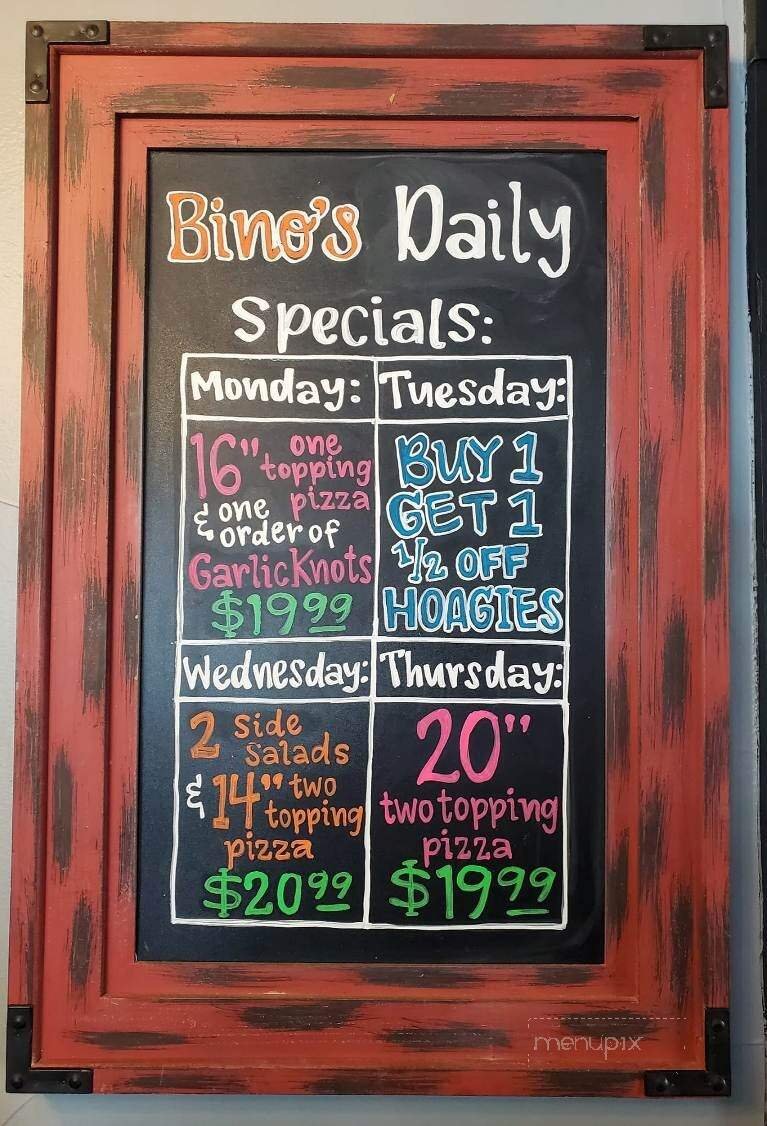 Bino's Daily
Specials:
Monday:
16" one
topping
pizza
& one
order of
Garlic Knots
$19.99
Tuesday:
BUY 1
GET 1
1/2 OFF
HOAGIES
Wednesday:
2 side
salads
& 14" two
topping
pizza
$20.99
Thursday:
20"
two topping
pizza
$19.99
menupix